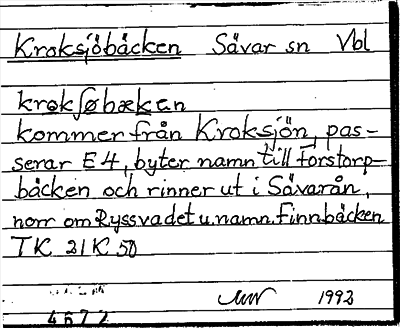 Kroksjöbäcken Sävar sn Vbl
krokʃøbæken
kommer från Kroksjön, pas-
serar E4, byter namn till Forstorp-
bäcken och rinner ut i Sävarån,
norr om Ryssvadet u. namn. Finnbäcken
TK 21K 50
1992
4672